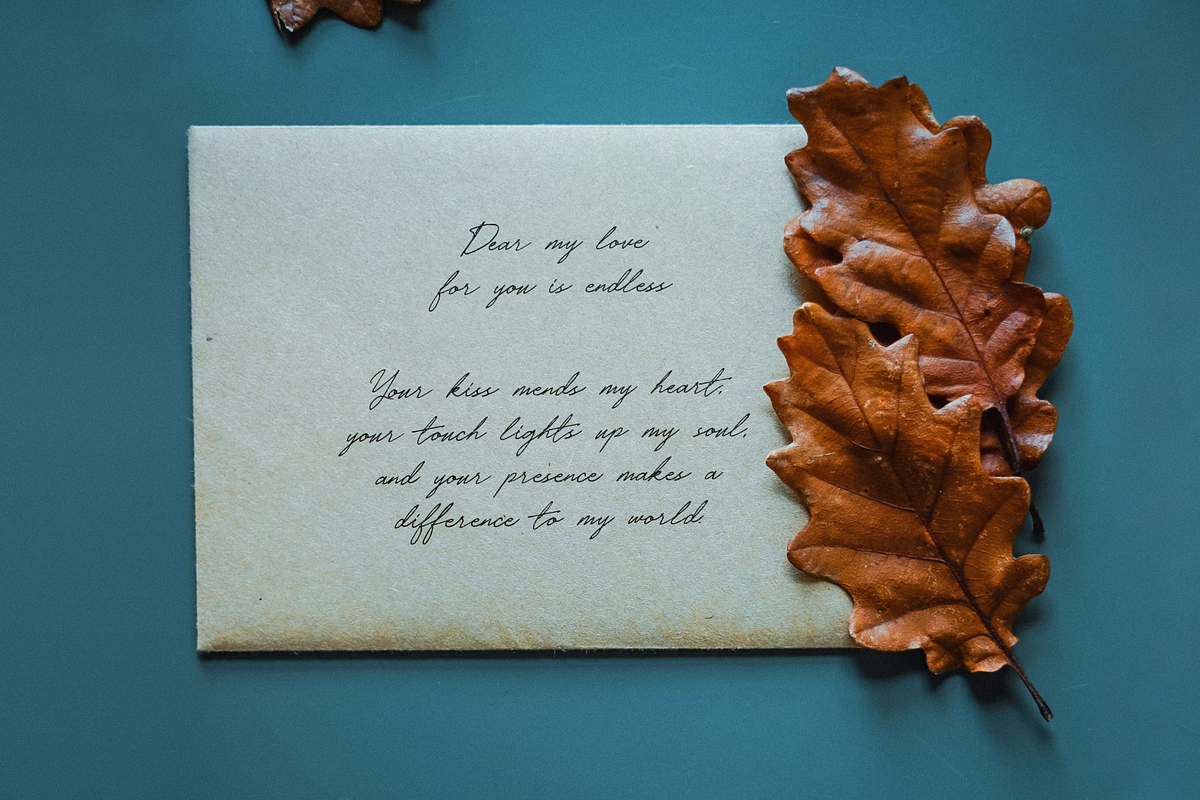 Dear my love
for you is endless
Your kiss mends my heart,
your touch lights up my soul,
and your presence makes a
difference to my world.